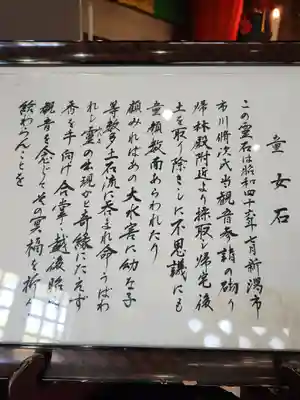 童女石
この霊石は昭和四十三年七月新潟市
市川脩次氏当観音参詣の砌り
帰林殿附近より採取し帰宅後
土を取り除きしに不思議にも
童顔数面あらわれたり
顧みればあの大水害に幼な子
等数多土石流に呑まれ命をうばわ
れし霊の出現かと奇縁にたえず
香を手向け合掌し戴後照
観音を念じその冥福を祈り
給わらんことを